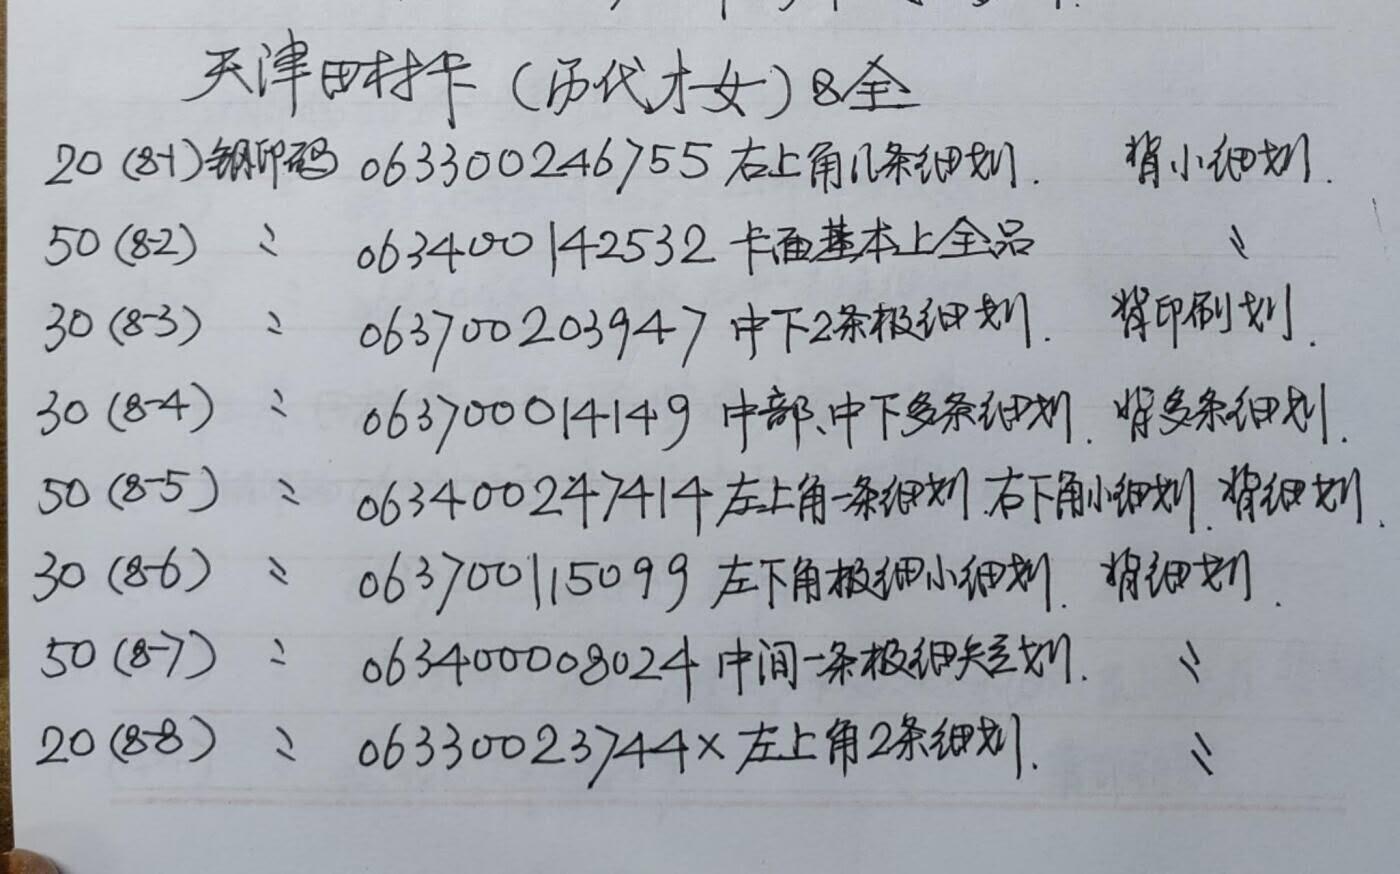 天津田村卡（历代才女）8全
20 (8-1) 钢印码 063300246755 右上角几条细划. 背小细划.
50 (8-2) 〃 063400142532 卡面基本上全品 〃
30 (8-3) 〃 063700203947 中下2条极细划. 背印刷划.
30 (8-4) 〃 063700014149 中部、中下多条细划. 背多条细划.
50 (8-5) 〃 063400247414 左上角一条细划.右下角小细划. 背细划.
30 (8-6) 〃 063700115099 左下角极细小细划. 背细划.
50 (8-7) 〃 063400008024 中间一条极细短划. 〃
20 (8-8) 〃 06330023744× 左上角2条细划. 〃